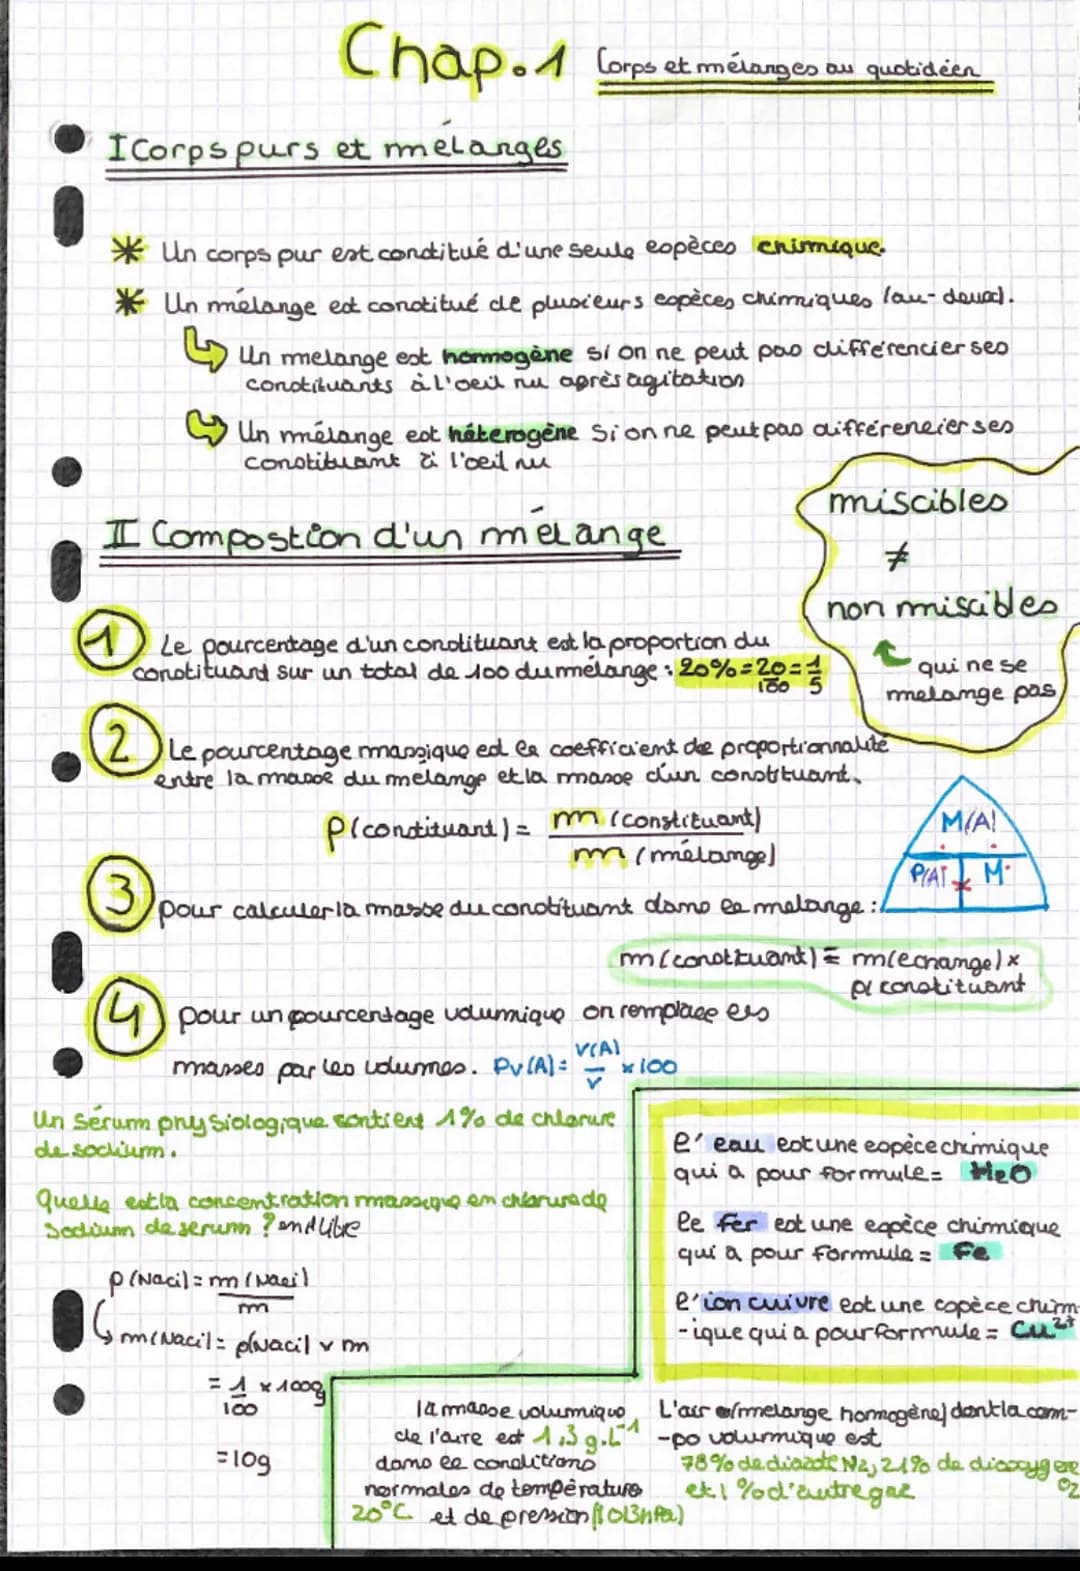 Chap.1 Corps et mélanges au quotidien
I Corps purs et mélanges
Un corps pur est constitué d'une seule espèces chimique.
Un mélange est constitué de plusieurs espèces chimiques (au-deux).
Un melange est homogène si on ne peut pas différencier ses
constituants à l'oeil nu après agitation
Un mélange est hétérogène Si on ne peut pas différencier ses
constituant à l'oeil nu
miscibles
≠
non miscibles
qui ne se
melange pas
II Compostion d'un mélange
1 Le pourcentage d'un constituant est la proportion du
constituant sur un total de 100 du mélange : 20% = 20/100 = 1/5
2 Le pourcentage massique est le coefficient de proportionnalité
entre la masse du mélange et la masse d'un constituant.
p(constituant) = m (constituant) / m (mélange)
M(A)
P(A) x M
3 pour calculer la masse du constituant dans le melange :
m (constituant) = m(echange) x
p( constituant
4 pour un pourcentage volumique on remplace les
masses par les volumes. Pv(A) = V(A)/V x 100
Un Sérum physiologique contient 1% de chlorure
de sodium.
Quelle est la concentration massique en chlorure de
Sodium de serum ? en d libre
p (Nacl) = m (Nacl) / m
m(Nacl) = p(Nacl) x m
= 1/100 x 1000g
= 10g
l'eau est une espèce chimique
qui a pour formule = H2O
le fer est une espèce chimique
qui a pour formule = Fe
l'ion cuivre est une espèce chim-
-ique qui a pour formule = Cu2+
la masse volumique
de l'aire est 1,3 g.L-1
dans les conditions
normales de température
20°C et de pression (1013hPa)
L'air (mélange homogène) dont la com-
-po volumique est
78% de diazote N2, 21% de dioxygene
O2
et 1 % d'autre gaz